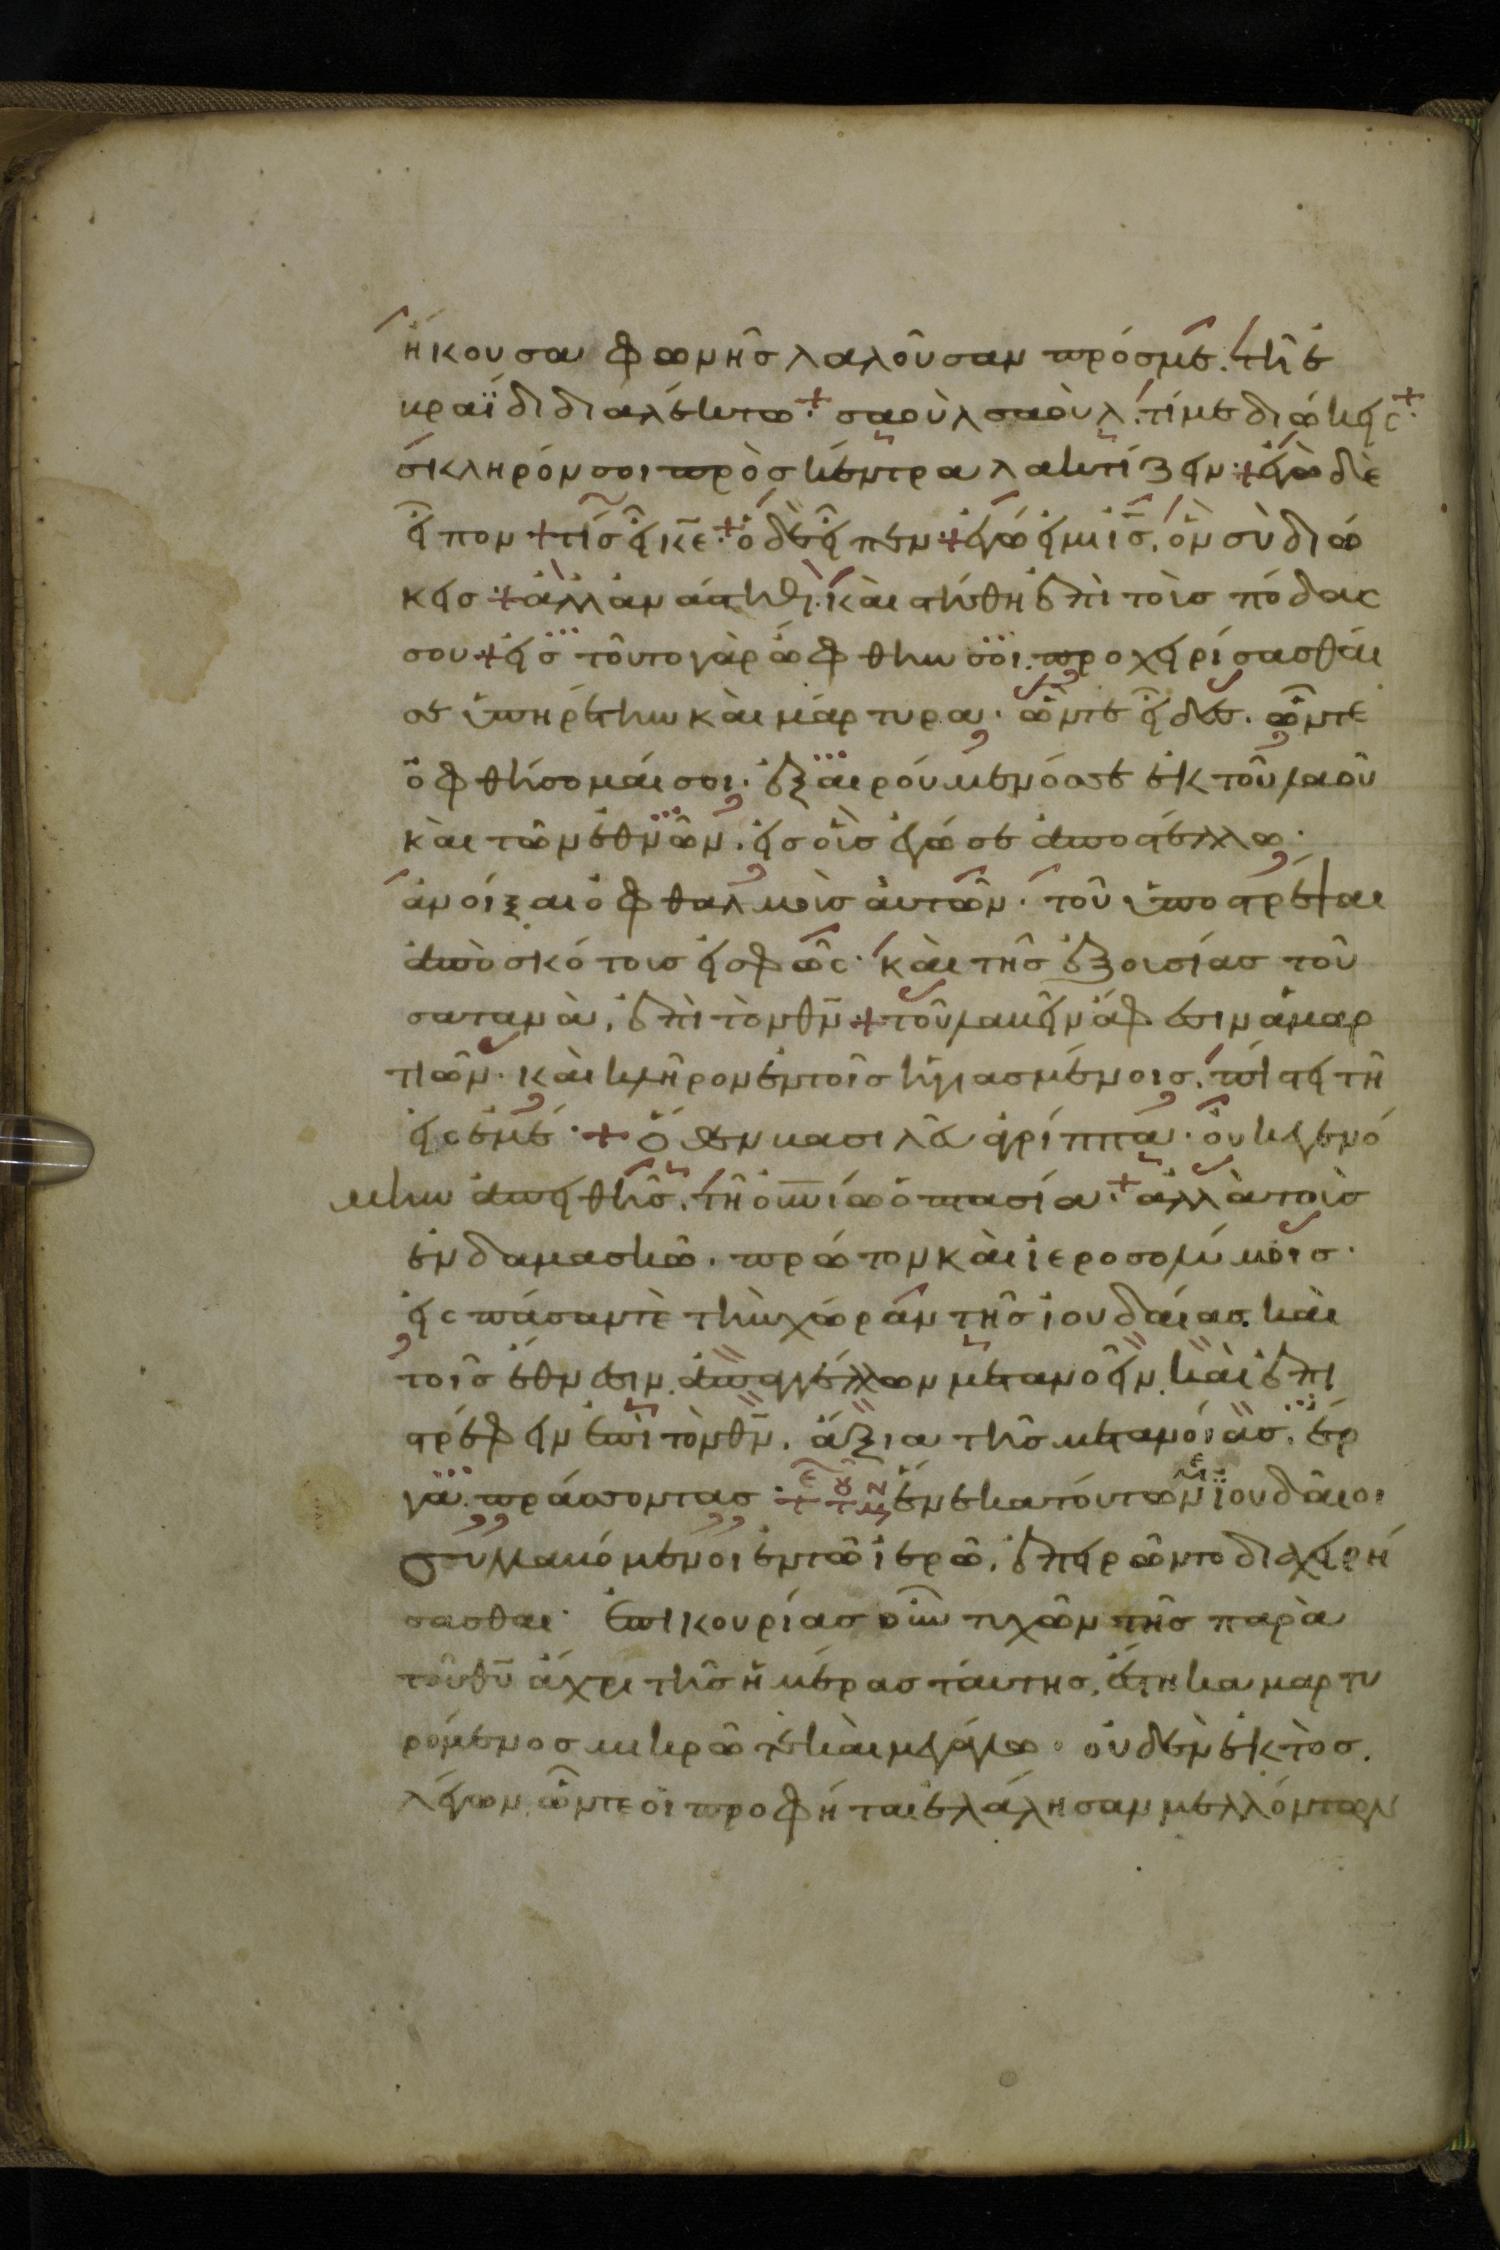 ἤκουσα φωνῆς λαλοῦσαν πρός με. τῆ ἑ
βραΐδι διαλέκτω· σαοὺλ σαοὺλ. τί με διώκεις·
σκληρόν σοι πρὸς κέντρα λακτίζειν· ἐγὼ δὲ
εἶπον τίς εἶ κ̅ε̅· ὁ δὲ εἶπεν· ἐγώ εἰμι ι̅ς̅, ὃν σὺ διώ
κεις ἀλλὰ ἀνάστηθι. καὶ στῆθι ἐπὶ τοὺς πόδας
σου εἰς τοῦτο γὰρ ὤφθην σοι. προχειρίσασθαί
σε ὑπηρέτην καὶ μάρτυρα· ὧν τε εἶδες. ὧν τε
ὀφθήσομαί σοι· ἐξαιρούμενός σε ἐκ τοῦ λαοῦ
καὶ τῶν ἐθνῶν. εἰς οὓς ἐγώ σε ἀποστέλλω·
ἀνοίξαι ὀφθαλμοὺς αὐτῶν· τοῦ ὑποστρέψαι
ἀπὸ σκότους εἰς φῶς· καὶ τῆς ἐξουσίας τοῦ
σατανᾶ, ἐπὶ τὸν θ̅ν̅ τοῦ λαβεῖν ἄφεσιν ἁμαρ
τιῶν· καὶ κλῆρον ἐν τοῖς ἡγιασμένοις. πίστει τῆ
εἰς ἐμέ· ὅθεν βασιλεῦ ἀγρίππα· οὐκ ἐγενό
μην ἀπειθὴς. τῆ ο̅υ̅νίω ὀπτασία· ἀλλὰ τοῖς
ἐν δαμασκῶ. πρῶτον καὶ ἱεροσολύμοις·
εἰς πᾶσάν τε τὴν χώραν τῆς ἰουδαίας. καὶ
τοῖς ἔθνεσιν. ἀπαγγέλλων μετανοεῖν. καὶ ἐπι
στρέφειν ἐπὶ τὸν θ̅ν̅. ἄξια τῆς μετανοίας. ἔρ
γα. πράσσοντας· ἕνεκα τούτων ἰουδαῖοι
συλλαβόμενοι ἐν τῶ ἱερῶ. ἐπειρῶντο διαχειρή
σασθαι· ἐπικουρίας οὖν τυχῶν τῆς παρὰ
τοῦ θ̅υ̅ ἄχρι τῆς ἡμέρας ταύτης, ἕστηκα μαρτυ
ρόμενος μικρῶ τὲ καὶ μεγάλω· οὐδὲν ἐκτὸς.
λέγων, ὧν τε οἱ προφῆται ἐλάλησαν μελλόντων